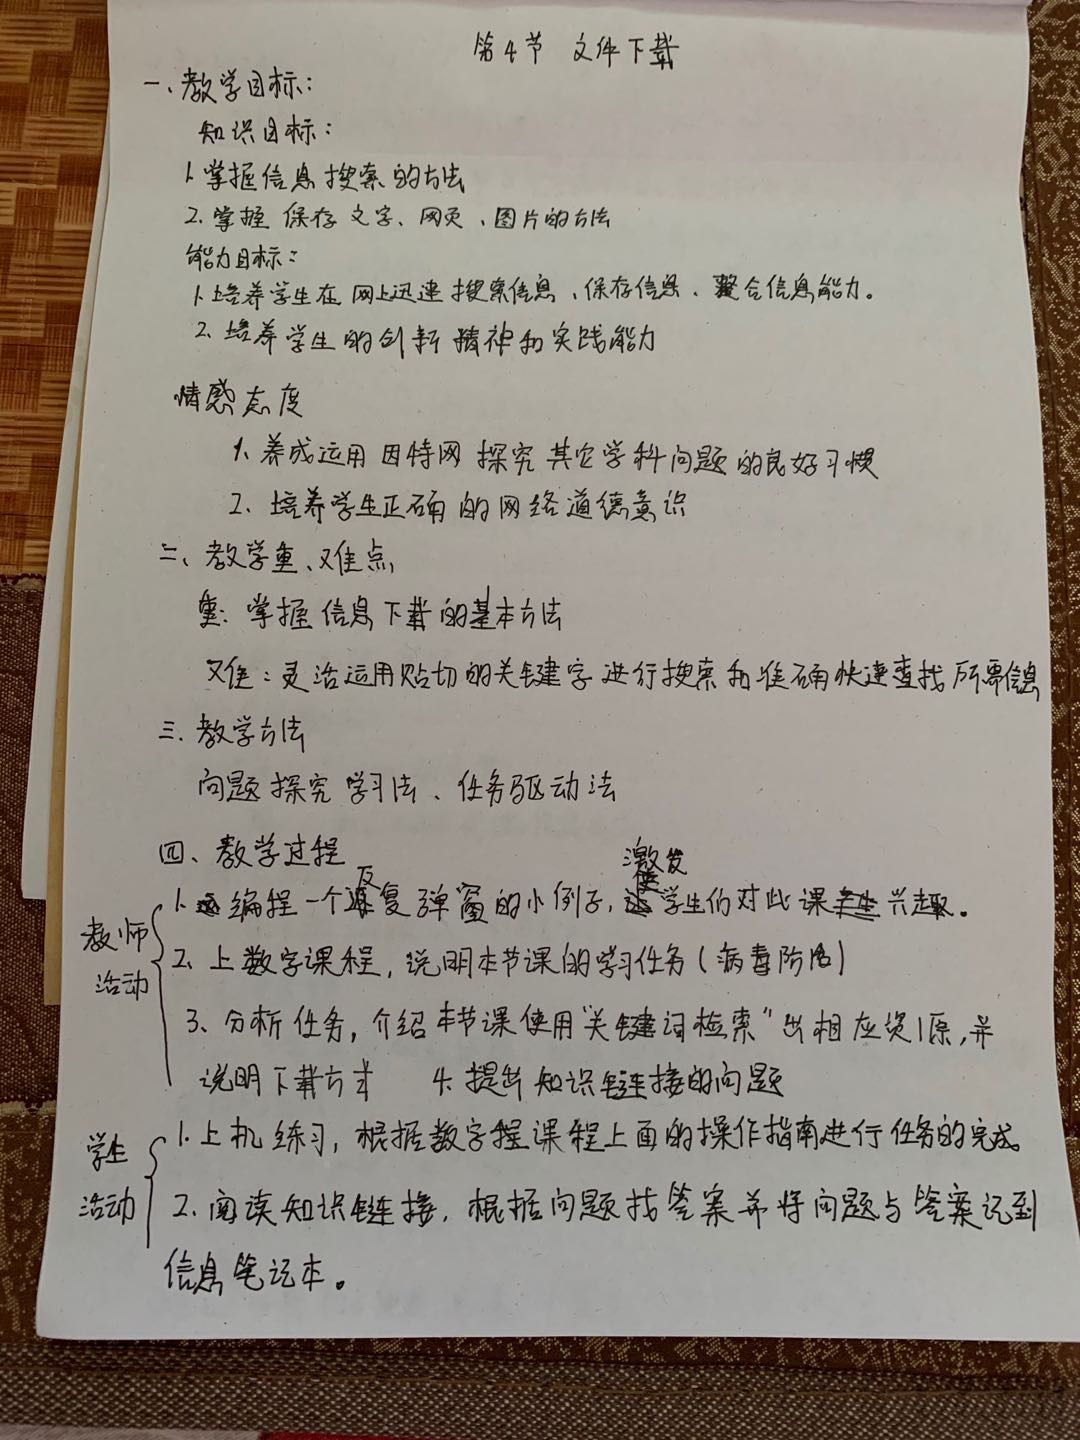 第4节 文件下载
一、教学目标：
知识目标：
1. 掌握信息搜索的方法
2. 掌握 保存文字、网页、图片的方法
能力目标：
1. 培养学生在网上迅速搜索信息、保存信息、整合信息能力。
2. 培养学生的创新精神和实践能力
情感态度
1. 养成运用因特网探究其它学科问题的良好习惯
2. 培养学生正确的网络道德意识
二、教学重、难点
重：掌握信息下载的基本方法
难：灵活运用贴切的关键字进行搜索和准确快速查找所需信息
三、教学方法
问题探究学习法、任务驱动法
四、教学过程
教师活动
1. 编程一个反复弹窗的小例子，激发学生们对此课兴趣。
2. 上数字课程，说明本节课的学习任务（病毒防治）
3、分析任务，介绍本节课使用“关键词检索”出相应资源，并
说明下载方式 4. 提出知识链接的问题
学生活动
1. 上机练习，根据数字程课程上面的操作指南进行任务的完成。
2. 阅读知识链接，根据问题找答案并将问题与答案记到
信息笔记本。